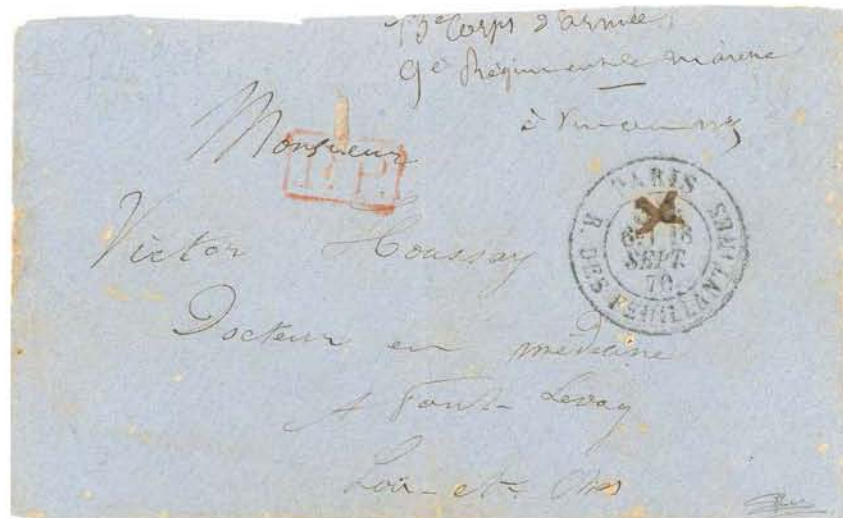 13e Corps d'armée
9e Régiment de marche
à Vincennes
Monsieur
P.P.
PARIS
6E 18
SEPT.
70
R. DES FEUILLANTINES
Victor Houssay
Docteur en médecine
A Pont-Levoy
Loir-et-Cher